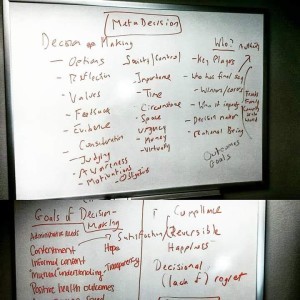 MetaDecision
Decision Making
- Options
- Reflection
- Values
- Feedback
- Evidence
- Consideration
- Judging
- Awareness
- Motivations
- Obligation
Sanity/Control
Importance
- Time
- Circumstance
- Space
- Urgency
- Money
- Virtually
Who?
- Key Players
- Who has final say
- Winners/losers
- Who it impacts
- Decision maker
- Rational Being
Friends
Family
Community
World
Outcomes
Goals
Goals of Decision-
Making
Administrative needs
Contentment
Informed consent
Mutual Understanding
Positive health outcomes
Satisfaction
Hope
- Transparency
Compliance
Reversible
Happiness
Decisional
(lack of) regret